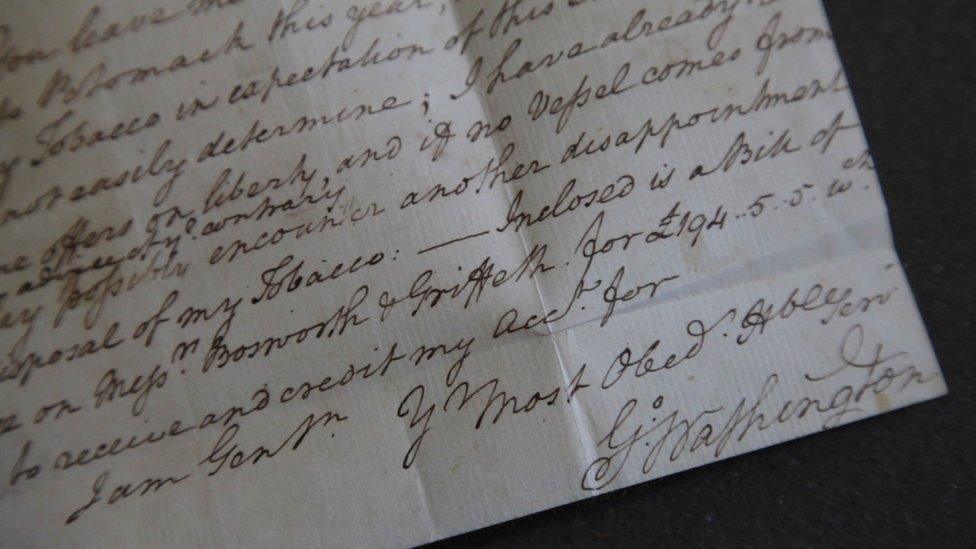 you leave me
Potomack this year,
Tobacco in expectation of this
not easily determine; I have already
offers on liberty, and if no Vessel comes from
advice to yᵉ contrary
possibly encounter another disappointment
disposal of my Tobacco: — Inclosed is a Bill of
on Messʳˢ. Bosworth & Griffeth for £194..5..5. wᶜʰ
to receive and credit my Accᵗ. for
I am Gentⁿ. Yʳ Most Obedᵗ. Hble Servᵗ
Gᵒ: Washington